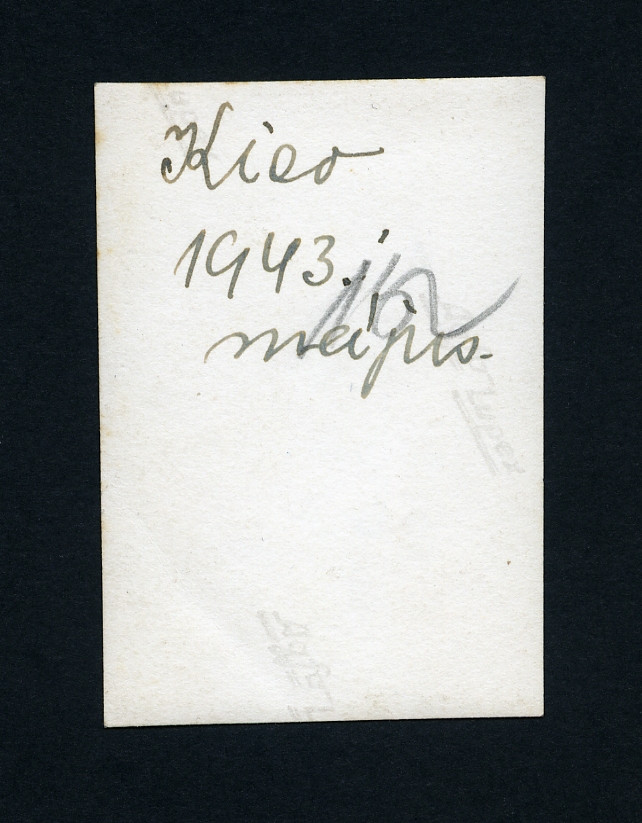 Kiev
1943.
május.